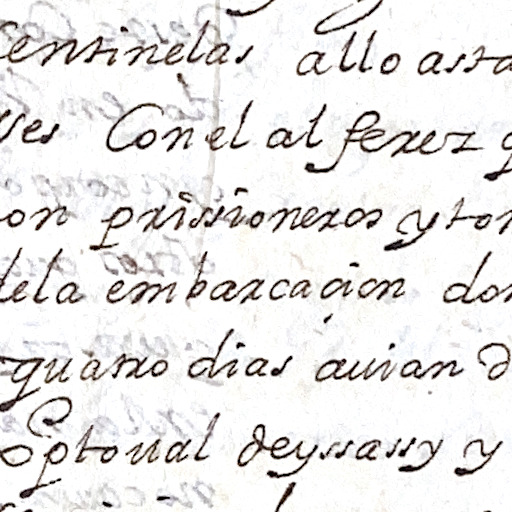 sentinelas allo asta
ses Con el alferez q
on prissioneros y ton
dela embarcaçion don
quatro dias auian d
xptoual deyssassy y